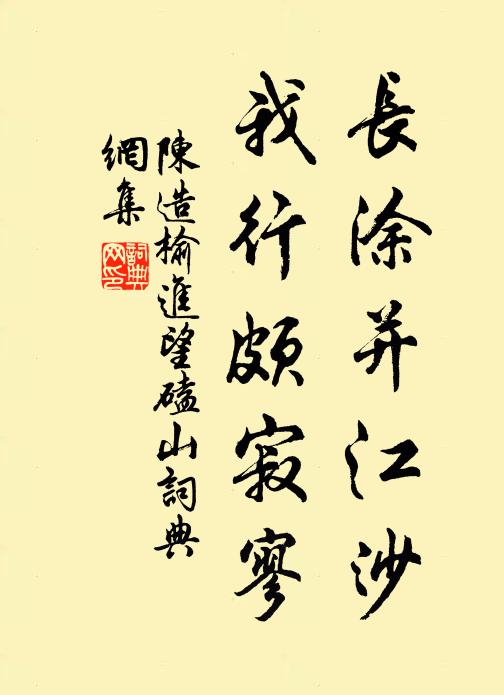 長涂并江沙
我行頗寂寥
陳造榆進望磕山詞典
網集
詞典网印